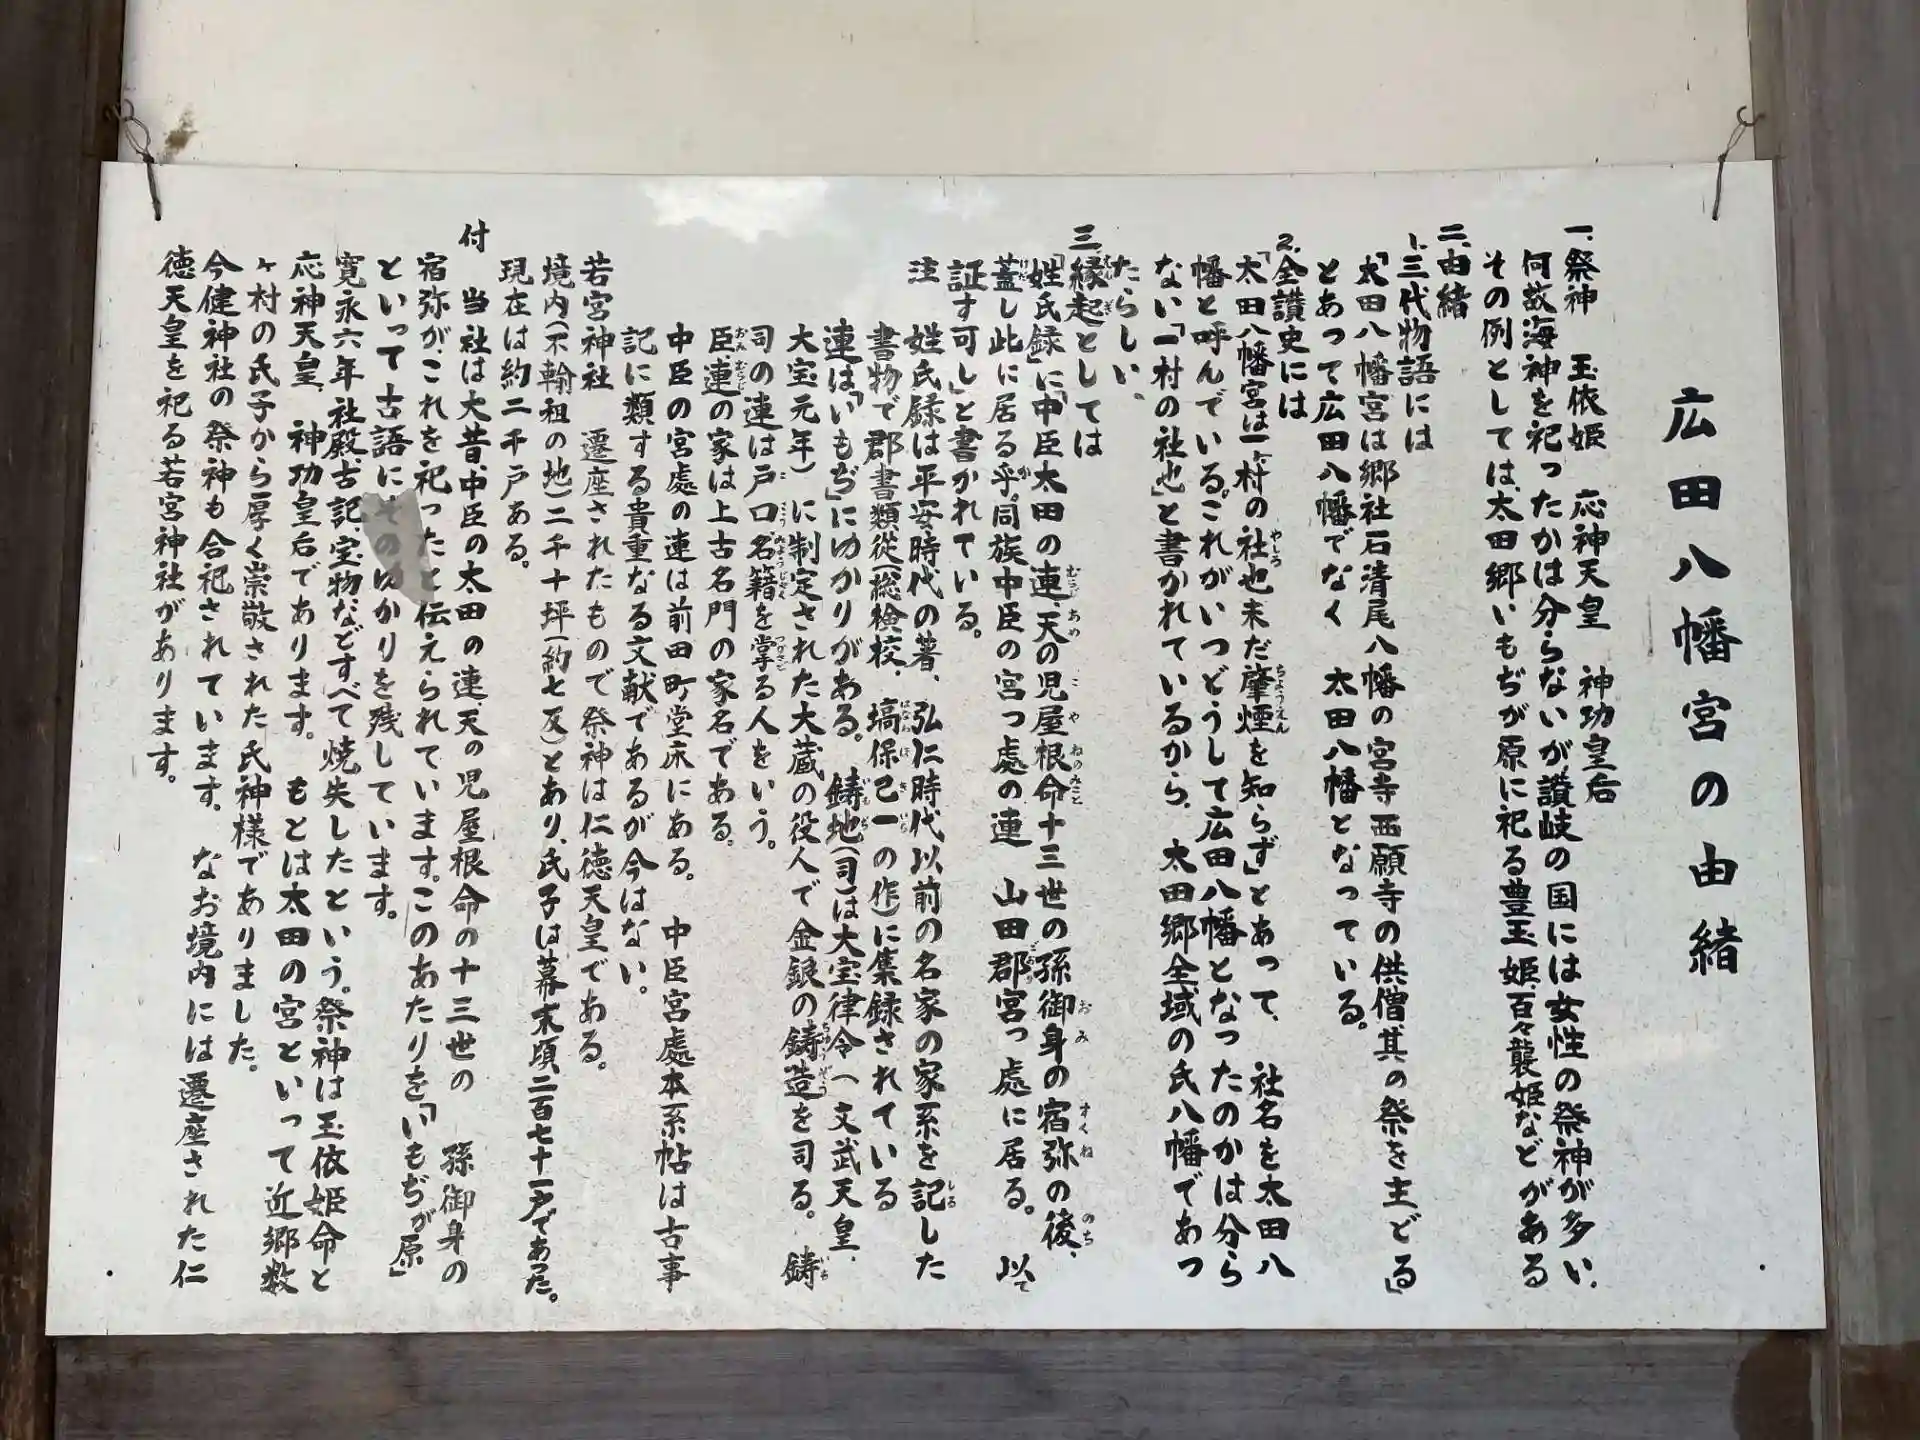 広田八幡宮の由緒
一、祭神　玉依姫　応神天皇　神功皇后
何故海神を祀ったかは分らないが讃岐の国には女性の祭神が多い、
その例としては、太田郷いもぢが原に祀る豊玉姫、百々襲姫などがある
二、由緒
1.三代物語には
「太田八幡宮は郷社石清尾八幡の宮寺西願寺の供僧其の祭を主どる」
とあって広田八幡でなく　太田八幡となっている。
2.全讃史には
「太田八幡宮は一村の社也未だ肇煙を知らず」とあって、社名を太田八
幡と呼んでいる。これがいつどうして広田八幡となったのかは分ら
ない「一村の社也」と書かれているから、太田郷全域の氏八幡であっ
たらしい、
三、縁起としては
「姓氏録」に「中臣太田の連、天の児屋根命十三世の孫御身の宿弥の後、
蓋し此に居る乎。同族中臣の宮っ處の連　山田郡宮っ處に居る。以て
証す可し」と書かれている。
注　姓氏録は平安時代の著、弘仁時代以前の名家の家系を記した
書物で郡書類従（総検校、塙保己一の作）に集録されている
連は「いもぢ」にゆかりがある。鋳地（司）は大宝律令（文武天皇、
大宝元年）に制定された大蔵の役人で金銀の鋳造を司る。鋳
司の連は戸口名籍を掌る人をいう。
臣連の家は上古名門の家名である。
中臣の宮處の連は前田町堂床にある。中臣宮處本系帖は古事
記に類する貴重なる文献であるが今はない。
若宮神社　遷座されたもので祭神は仁徳天皇である。
境内（不輸租の地）二千十坪（約七反）とあり、氏子は幕末頃二百七十一戸であった。
現在は約二千戸ある。
付　当社は大昔、中臣の太田の連、天の児屋根命の十三世の　孫御身の
宿弥が、これを祀ったと伝えられています。このあたりを「いもぢが原」
といって古語にそのゆかりを残しています。
寛永六年、社殿、古記、宝物などすべて焼失したという。祭神は玉依姫命と
応神天皇、神功皇后であります。もとは太田の宮といって近郷数
ヶ村の氏子から厚く崇敬された氏神様でありました。
今健神社の祭神も合祀されています。なお境内には遷座された仁
徳天皇を祀る若宮神社があります。